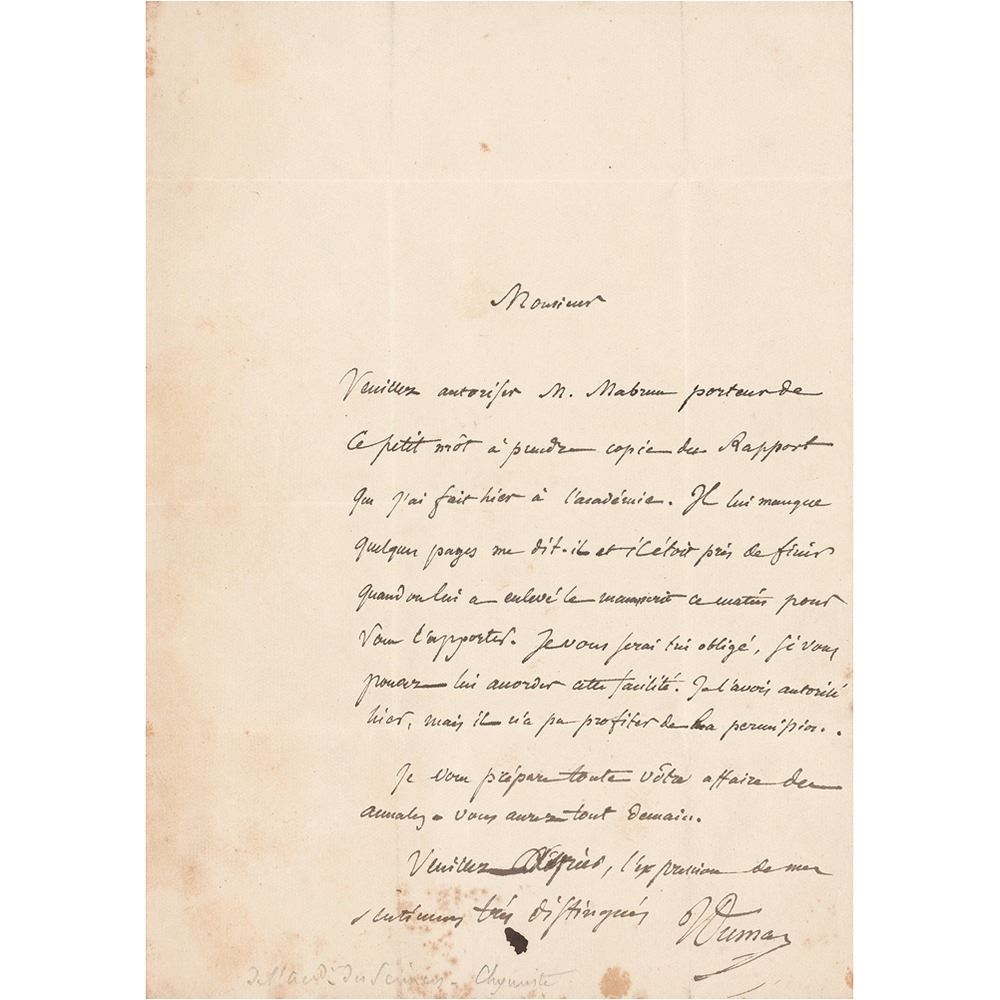 Monsieur
Veuillez autoriser M. Mabrun porteur de
ce petit môt à prendre copie du Rapport
que j'ai fait hier à l'académie. Il lui manque
quelques pages me dit-il et il étoit près de finir
quand on lui a enlevé le manuscrit ce matin pour
vous l'apporter. Je vous serai très obligé, si vous
pouvez lui accorder cette facilité. Je l'avois autorisé
hier, mais il n'a pu profiter de la permission.
Je vous prépare toute vôtre affaire des
annales. vous aurez tout demain.
Veuillez agréer, l'expression de mes
sentimens très distingués Dumas
de l'acad. des Sciences - Chymiste